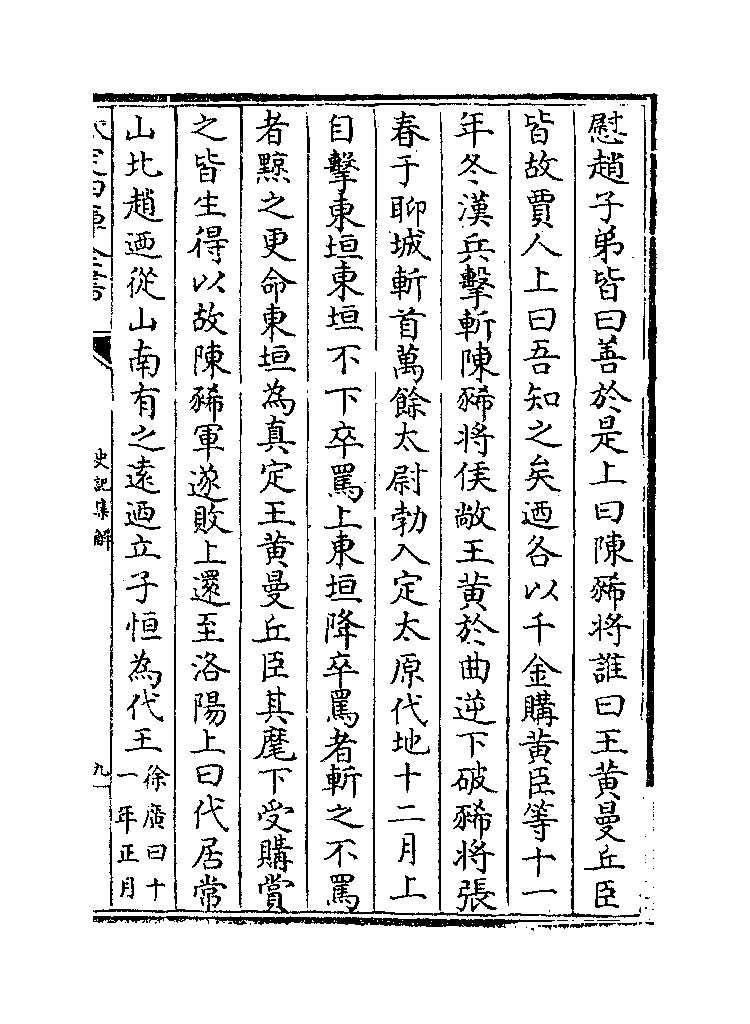 慰趙子弟皆曰善於是上曰陳豨將誰曰王黄曼丘臣
皆故賈人上曰吾知之矣迺各以千金購黄臣等十一
年冬漢兵擊斬陳豨將侯敞王黄於曲逆下破豨將張
春于聊城斬首萬餘太尉勃入定太原代地十二月上
自擊東垣東垣不下卒罵上東垣降卒罵者斬之不罵
者黥之更命東垣為真定王黄曼丘臣其麾下受購賞
之皆生得以故陳豨軍遂敗上還至洛陽上曰代居常
山北趙迺從山南有之遠迺立子恒為代王徐廣曰十一年正月
史記集解
九